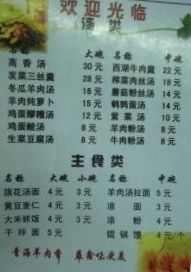 欢迎光临
汤类
名称 大碗 名称 中碗
高香汤 30元 西湖牛肉羹 22元
发菜三丝羹 28元 榨菜肉丝汤 18元
冬瓜羊肉汤 15元 蘑菇粉丝汤 18元
羊肉炖萝卜 20元 鹌鹑蛋汤 15元
鸡蛋醪糟汤 12元 紫菜汤 10元
鸡蛋酸汤 8元 羊肉粉汤 8元
生菜豆腐汤 8元 牛肉粉汤 8元
主食类
名称 大碗 小碗 名称 中碗
旗花汤面 4元 3元 羊肉汤拉面 5元
黄豆麦仁 4元 3元 凉面 3元
大米稠饭 4元 3元 凉粉 3元
干拌面 5元 锟锅 4元/个
青海羊肉